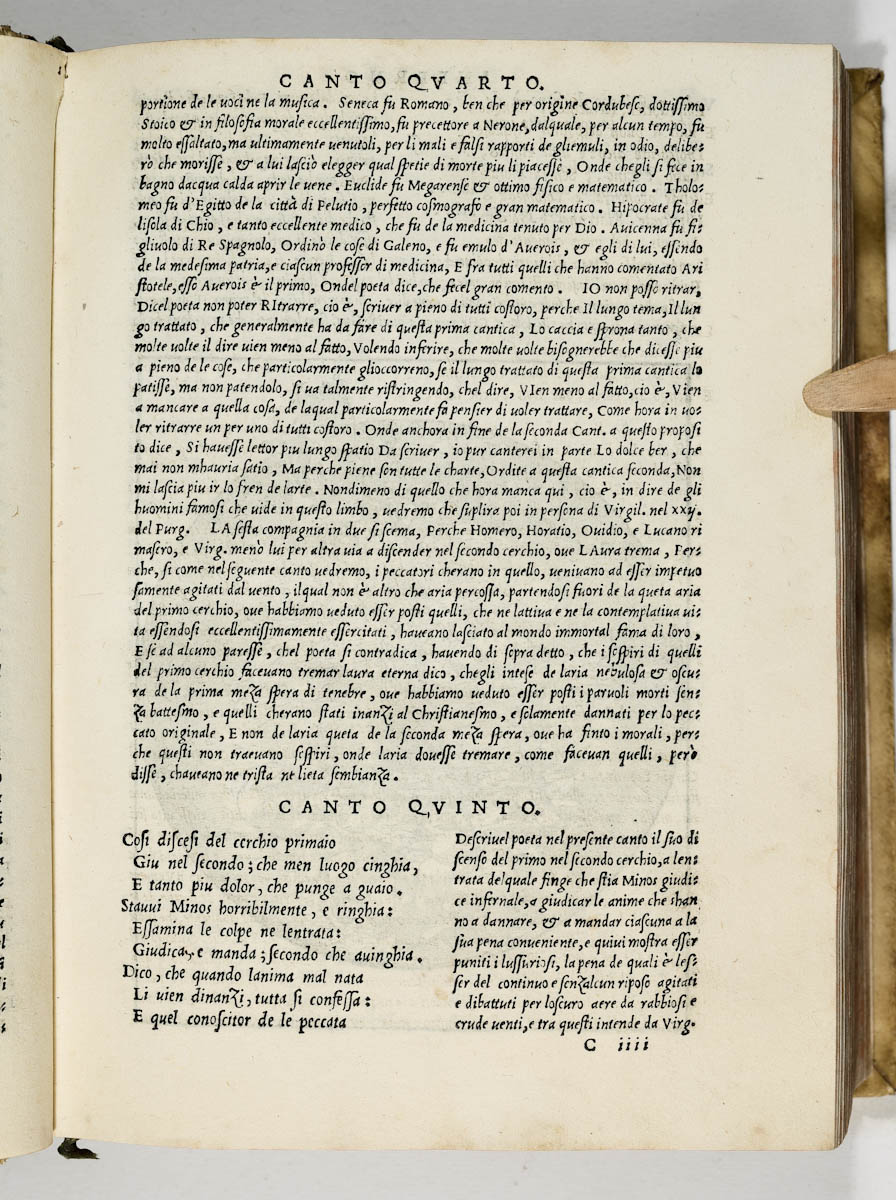 CANTO QVARTO.
portione de le uoci ne la musica. Seneca fu Romano, ben che per origine Cordubese, dottissimo
Stoico & in filosofia morale eccellentissimo, fu precettore a Nerone, dalquale, per alcun tempo, fu
molto essaltato, ma ultimamente uenutoli, per li mali e falsi rapporti de gliemuli, in odio, delibe-
rò che morisse, & a lui lasciò elegger qual spetie di morte piu li piacesse, Onde chegli si fece in
bagno dacqua calda aprir le uene. Euclide fu Megarense & ottimo fisico e matematico. Tholo-
meo fu d'Egitto de la città di Pelutio, perfetto cosmografo e gran matematico. Hipocrate fu de
lisola di Chio, e tanto eccellente medico, che fu de la medicina tenuto per Dio. Auicenna fu fi-
gliuolo di Re Spagnolo, Ordinò le cose di Galeno, e fu emulo d'Auerois, & egli di lui, essendo
de la medesima patria, e ciascun professor di medicina, E fra tutti quelli che hanno comentato Ari
stotele, esso Auerois è il primo, Ondel poeta dice, che fecel gran comento. IO non posso ritrar,
Dicel poeta non poter RItrarre, cio è, scriuer a pieno di tutti costoro, perche Il lungo tema, Il lun
go trattato, che generalmente ha da fare di questa prima cantica, Lo caccia e sprona tanto, che
molte uolte il dire uien meno al fatto, Volendo inferire, che molte uolte bisegnerebbe che dicesse piu
a pieno de le cose, che particolarmente glioccorreno, se il lungo trattato di questa prima cantica lo
patisse, ma non patendolo, si ua talmente ristringendo, chel dire, VIen meno al fatto, cio è, Vien
a mancare a quella cosa, de laqual particolarmente fa pensier di uoler trattare, Come hora in uo-
ler ritrarre un per uno di tutti costoro. Onde anchora in fine de la seconda Cant. a questo proposi
to dice, Si hauesse lettor piu lungo spatio Da scriuer, io pur canterei in parte Lo dolce ber, che
mai non mhauria satio, Ma perche piene son tutte le charte, Ordite a questa cantica seconda, Non
mi lascia piu ir lo fren de larte. Nondimeno di quello che hora manca qui, cio è, in dire de gli
huomini famosi che uide in questo limbo, uedremo che suplira poi in persona di Virgil. nel xxij.
del Purg. LA sesta compagnia in due si scema, Perche Homero, Horatio, Ouidio, e Lucano ri
masero, e Virg. menò lui per altra uia a discender nel secondo cerchio, oue LAura trema, Per-
che, si come nel seguente canto uedremo, i peccatori cherano in quello, ueniuano ad esser impetuo
samente agitati dal uento, ilqual non è altro che aria percossa, partendosi fuori de la queta aria
del primo cerchio, oue habbiamo ueduto esser posti quelli, che ne lattiua e ne la contemplatiua ui-
ta essendosi eccellentissimamente essercitati, haueano lasciato al mondo immortal fama di loro,
E se ad alcuno paresse, chel poeta si contradica, hauendo di sopra detto, che i sospiri di quelli
del primo cerchio faceuano tremar laura eterna dico, chegli intese de laria nebulosa & oscu-
ra de la prima meza spera di tenebre, oue habbiamo ueduto esser posti i paruoli morti sen-
za battesmo, e quelli cherano stati inanzi al Christianesmo, e solamente dannati per lo pec-
cato originale, E non de laria queta de la seconda meza spera, oue ha finto i morali, per-
che questi non traeuano sospiri, onde laria douesse tremare, come faceuan quelli, però
disse, chaueano ne trista ne lieta sembianza.
CANTO QVINTO.
Cosi discesi del cerchio primaio
Giu nel secondo; che men luogo cinghia,
E tanto piu dolor, che punge a guaio.
Stauui Minos horribilmente, e ringhia:
Essamina le colpe ne lentrata:
Giudica, e manda; secondo che auinghia.
Dico, che quando lanima mal nata
Li uien dinanzi, tutta si confessa:
E quel conoscitor de le peccata
Descriuel poeta nel presente canto il suo di
scenso del primo nel secondo cerchio, a len-
trata delquale finge che stia Minos giudi-
ce infernale, a giudicar le anime che shan
no a dannare, & a mandar ciascuna a la
sua pena conueniente, e quiui mostra esser
puniti i lussuriosi, la pena de quali è les-
ser del continuo e senzalcun riposo agitati
e dibattuti per loscuro aere da rabbiosi e
crude uenti, e tra questi intende da Virg.
C iiii